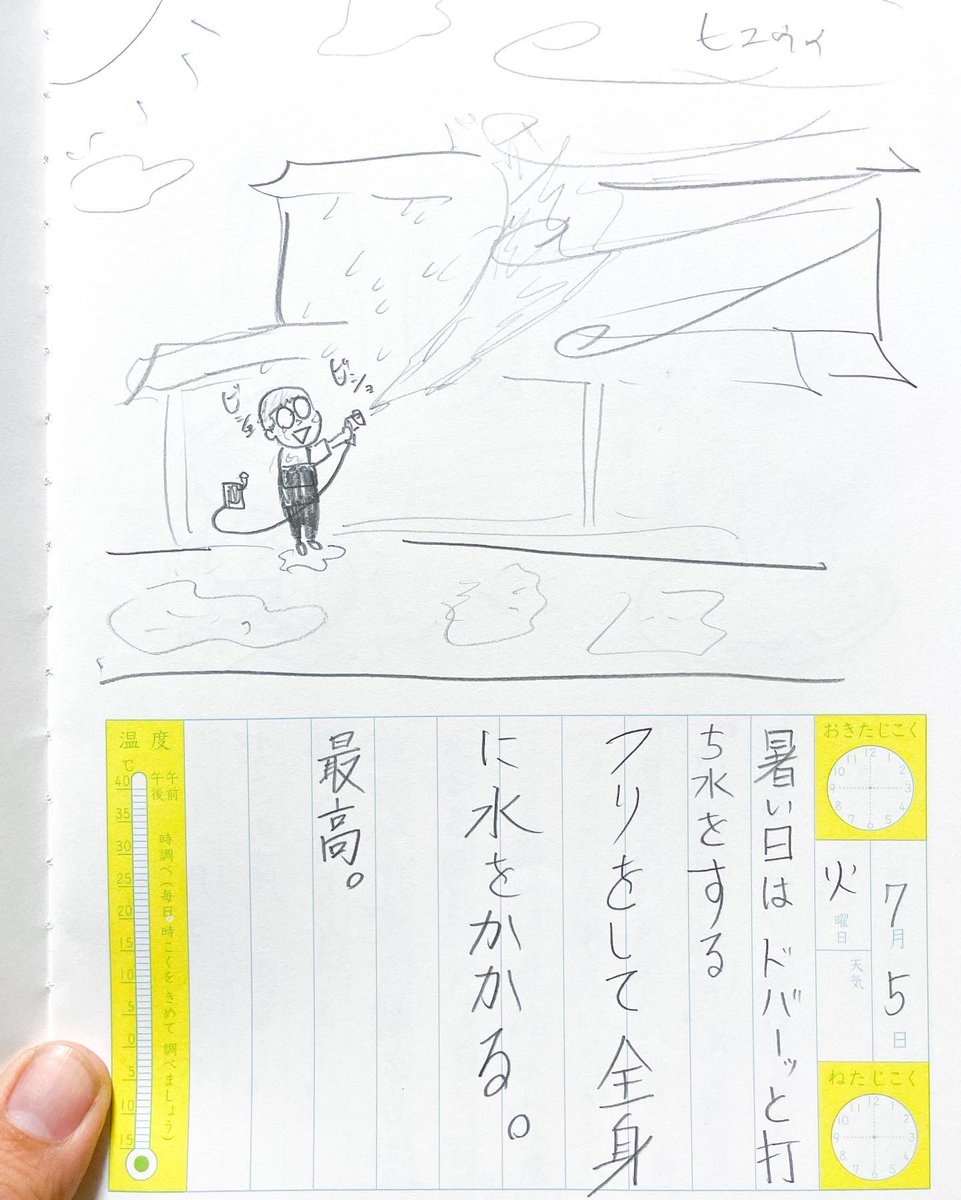 ヒュウイ
ビシュ
ビシュ
おきたじこく
12
11
1
10
2
9
3
8
4
7
6
5
7月5日
火曜日
天気
ねたじこく
12
11
1
10
2
9
3
8
4
7
6
5
暑い日はドバーッと打
ち水をする
フリをして全身
に水をかかる。
最高。
温度
℃
午前
午後
時調べ(毎日。時こくをきめて調べましょう)
40
35
30
25
20
15
10
5
0
5
10
15